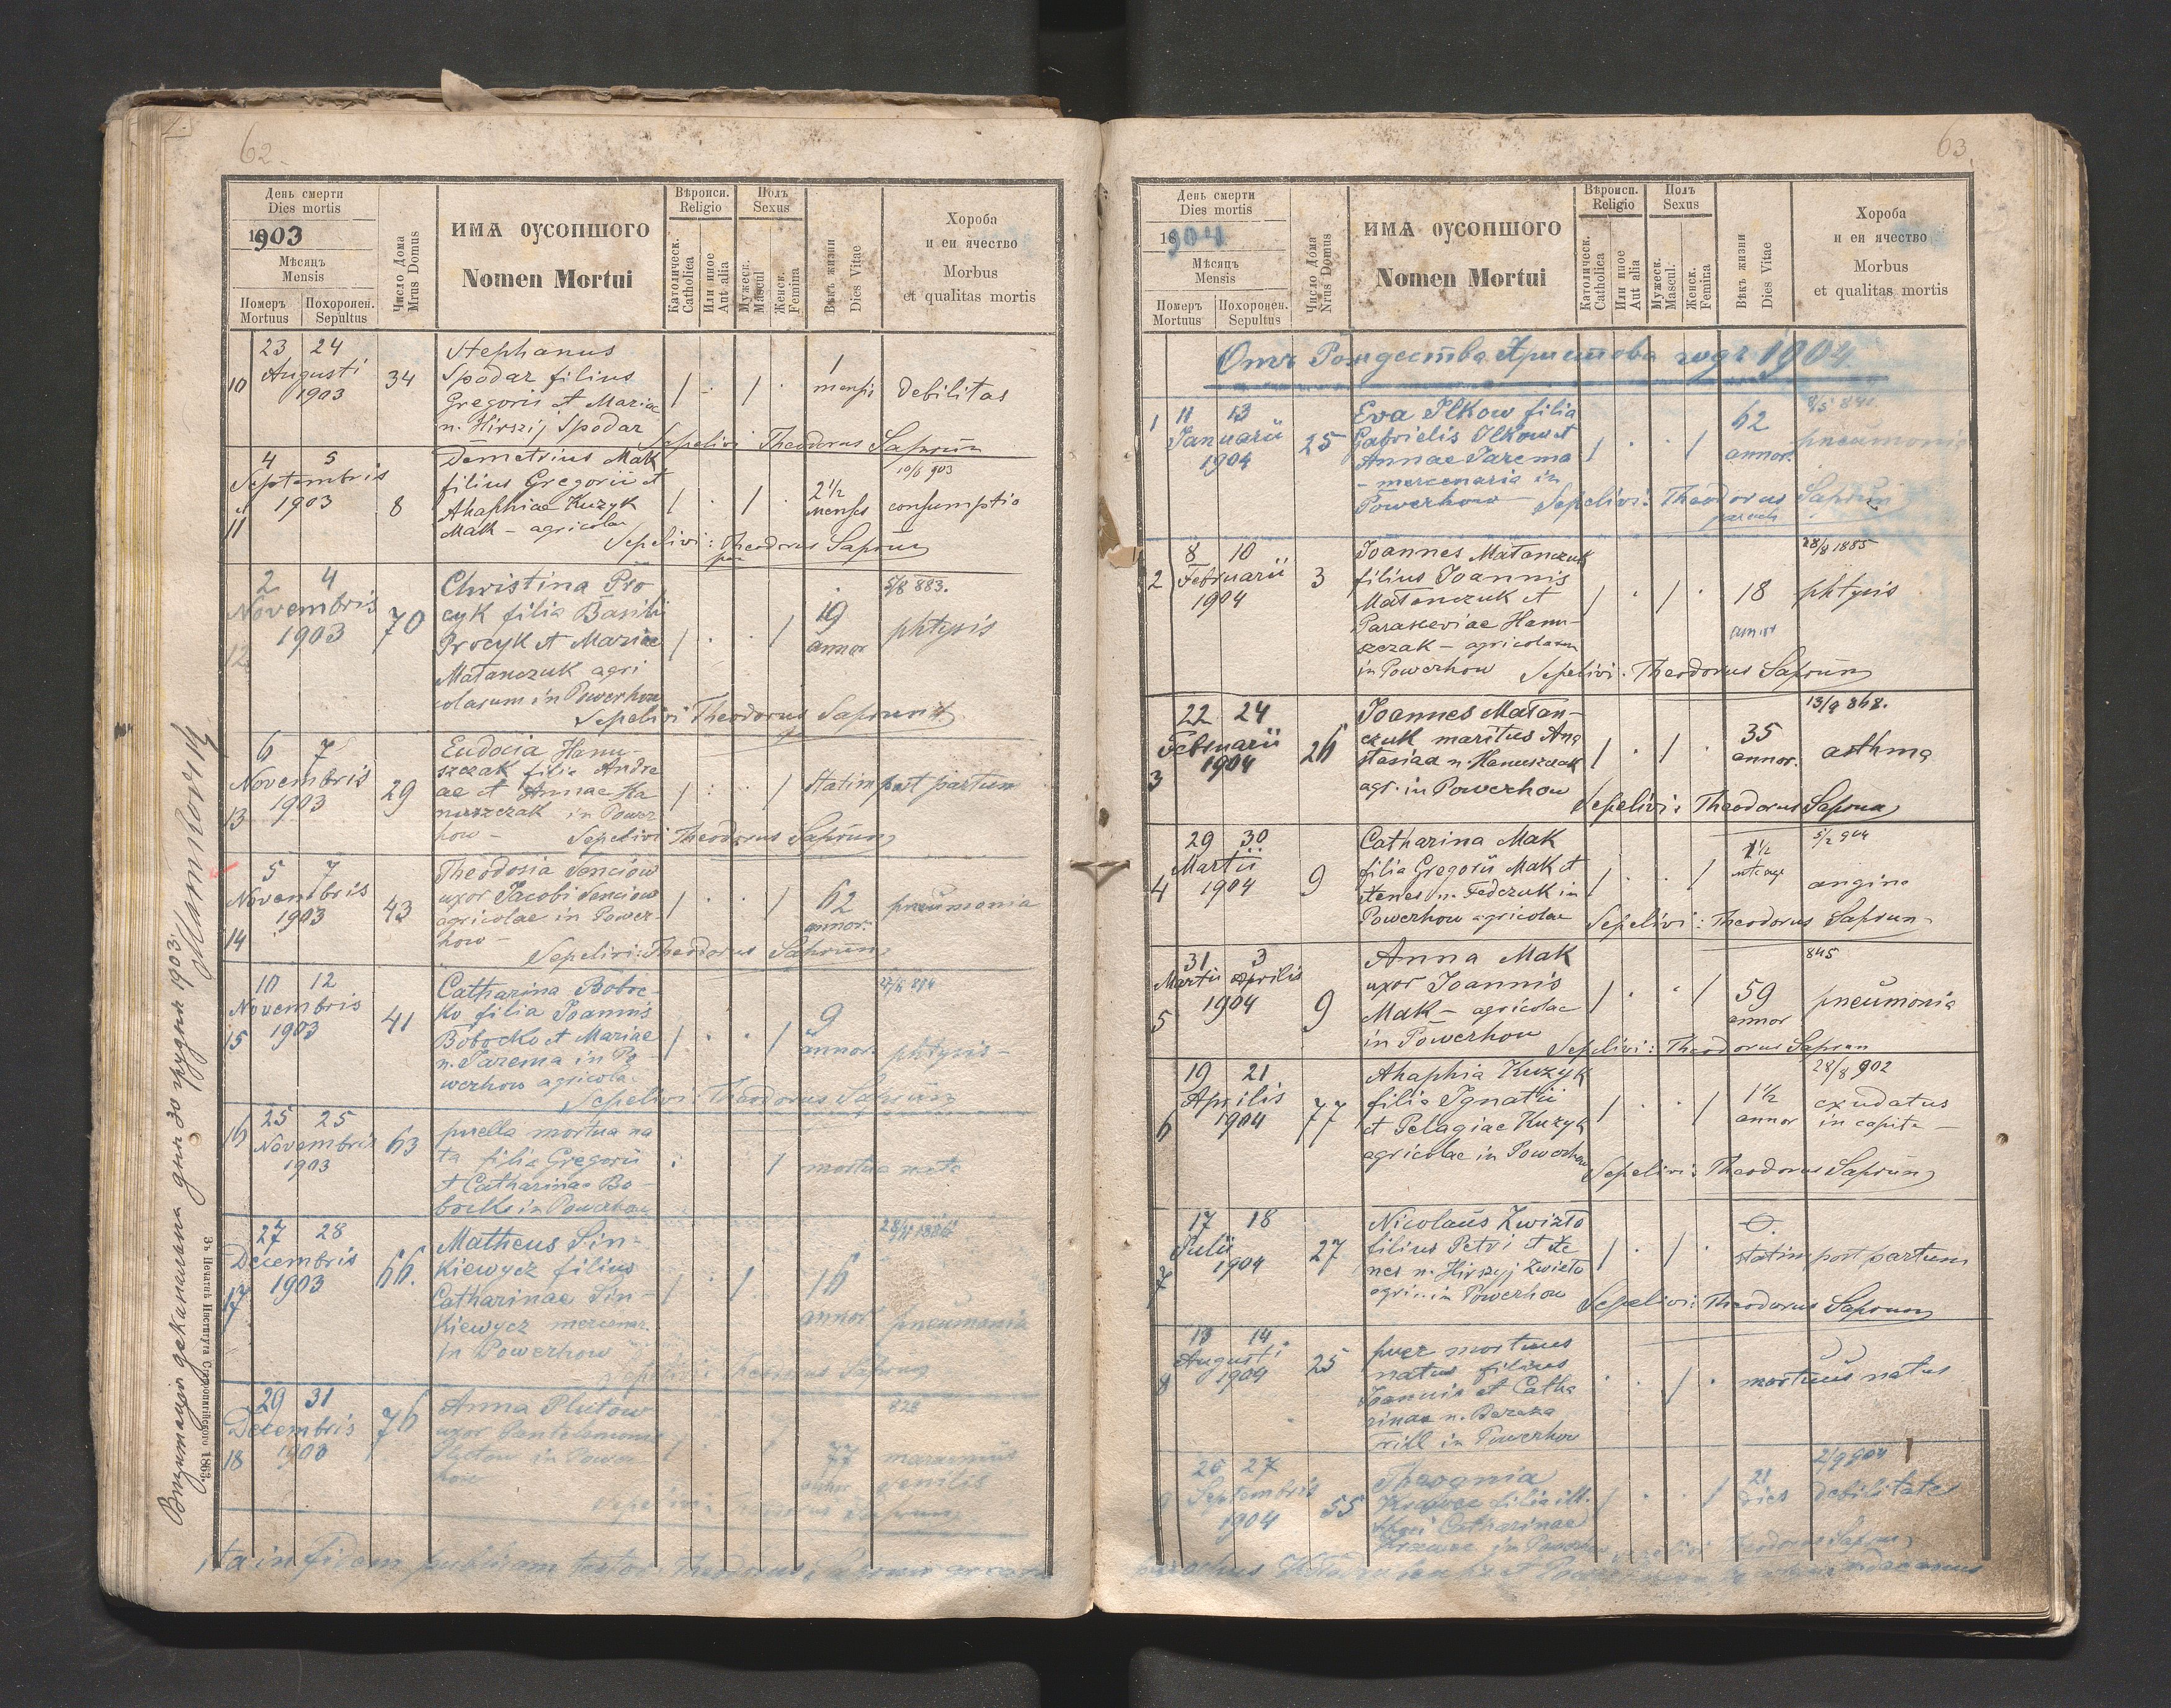 62.
День смерти
Dies mortis
1903
Мѣсяцъ
Mensis
Померъ Похоронен.
Mortuus Sepultus
Число Дома
Mrus Domus
ИМѦ ОУСОПШОГО
Nomen Mortui
Вѣроисп.
Religio
Католическ.
Catholica
Или иное
Aut alia
Полъ
Sexus
Мужеск.
Mascul
Женск.
Femina
Вѣкъ жизни
Dies Vitae
Хороба
и еи ячество
Morbus
et qualitas mortis
10
23 24
Augusti
1903
34
Stephanus
Spodar filius
Gregorii et Mariae
n. Hirszij Spodar
1
mensi
debilitas
Sepelivi Theodorus Saprun
11
4 5
Septembris
1903
8
Demetrius Mak
filius Gregorii et
Ahaphiae Kuzyk
Mak - agricolae
2 1/2
menses
10/6 903
consumptio
Sepelivi: Theodorus Saprun
12
2 4
Novembris
1903
70
Christina Pro
cyk filia Basilii
Procyk et Mariae
Matanczuk agri
colarum in Powerhow
19
annor
5/8 883.
phtysis
Sepelivi Theodorus Saprun
13
6 7
Novembris
1903
29
Eudocia Hanu-
szczak filia Andre
ae et Annae Ha
nuszczak in Power
how -
statim post partum
Sepelivi Theodorus Saprun
14
5 7
Novembris
1903
43
Theodosia Senciow
uxor Jacobi Senciow
agricolae in Power
how -
62
annor.
pneumonia
Sepelivi: Theodorus Saprun
15
10 12
Novembris
1903
41
Catharina Boboc-
ko filia Joannis
Bobocko et Mariae
n. Jarema in Po-
werhow agricola.
9
annor.
phtysis -
Sepelivi Theodorus Saprun
16
25 25
Novembris
1903
63
puella mortua na
ta filia Gregorii
et Catharinae Bo-
bocko in Powerhow
mortua nata
17
27 28
Decembris
1903
66.
Matheus Sin-
kiewycz filius
Catharinae Sin-
kiewycz mercenar.
in Powerhow
16
annor
pneumonia
Sepelivi Theodorus Saprun
18
29 31
Decembris
1903
76
Anna Plutow
uxor Pantelemonis
Plutow in Power
how
77
annor
828
marasmus
senilis
Sepelivi Theodorus Saprun
ita in fidem publicam testor Theodorus Saprun
30 грудня 1903.
Зъ Печатнѣ Института Ставропигійского 1863.
63.
День смерти
Dies mortis
18904
Мѣсяцъ
Mensis
Померъ Похоронен.
Mortuus Sepultus
Число Дома
Nrus Domus
ИМѦ ОУСОПШОГО
Nomen Mortui
Вѣроисп.
Religio
Католическ.
Catholica
Или иное
Aut alia
Полъ
Sexus
Мужеск.
Mascul.
Женск.
Femina
Вѣкъ жизни
Dies Vitae
Хороба
и еи ячество
Morbus
et qualitas mortis
Отъ Рождества Христова годъ 1904.
1
11 13
Januarii
1904
25
Eva Ilkow filia
Gabrielis Ilkow et
Annae Jarema
- mercenaria in
Powerhow -
62
annor.
pneumonia
Sepelivi: Theodorus Saprun
parochus
2
8 10
Februarii
1904
3
Joannes Matanczuk
filius Joannis
Matanczuk et
Parasceviae Hanu-
szczak - agricolarum
in Powerhow
18
annor
28/8 1885
phtysis
Sepelivi: Theodorus Saprun
3
22 24
Februarii
1904
26
Joannes Matan-
czuk maritus Ana
stasiae n. Hanuszczak
agr. in Powerhow
35
annor.
13/9 868.
asthma
Sepelivi: Theodorus Saprun
4
29 30
Martii
1904
9
Catharina Mak
filia Gregorii Mak et
Xenes n. Fedczuk in
Powerhow agricolae
1 1/2
5/2 904
angina
Sepelivi: Theodorus Saprun -
5
31 3
Martii Aprilis
1904
9
Anna Mak
uxor Joannis
Mak - agricolae
in Powerhow
59
annor
845
pneumonia
Sepelivi: Theodorus Saprun
6
19 21
Aprilis
1904
77
Ahaphia Kuzyk
filia Ignatii
et Pelagiae Kuzyk
agricolae in Powerhow
1 1/2
annor
28/8 902
exudatus
in capite -
Sepelivi: Theodorus Saprun
7
17 18
Julii
1904
27
Nicolaus Zwizto
filius Petri et Xe
nes n. Hirszyj Zwizto
agric. in Powerhow
statim post partum
Sepelivi: Theodorus Saprun
8
13 14
Augusti
1904
25
puer mortuus
natus filius
Joannis et Catha
rinae n. Bereza
Trill in Powerhow
mortuus natus
9
26 27
Septembris
1904
55
Theognia
Krawec filia ill.
thori Catharinae
Krawec in Powerhow
21
dies
2/9 904
debilitate
sepelivi Theodorus Saprun
parochus